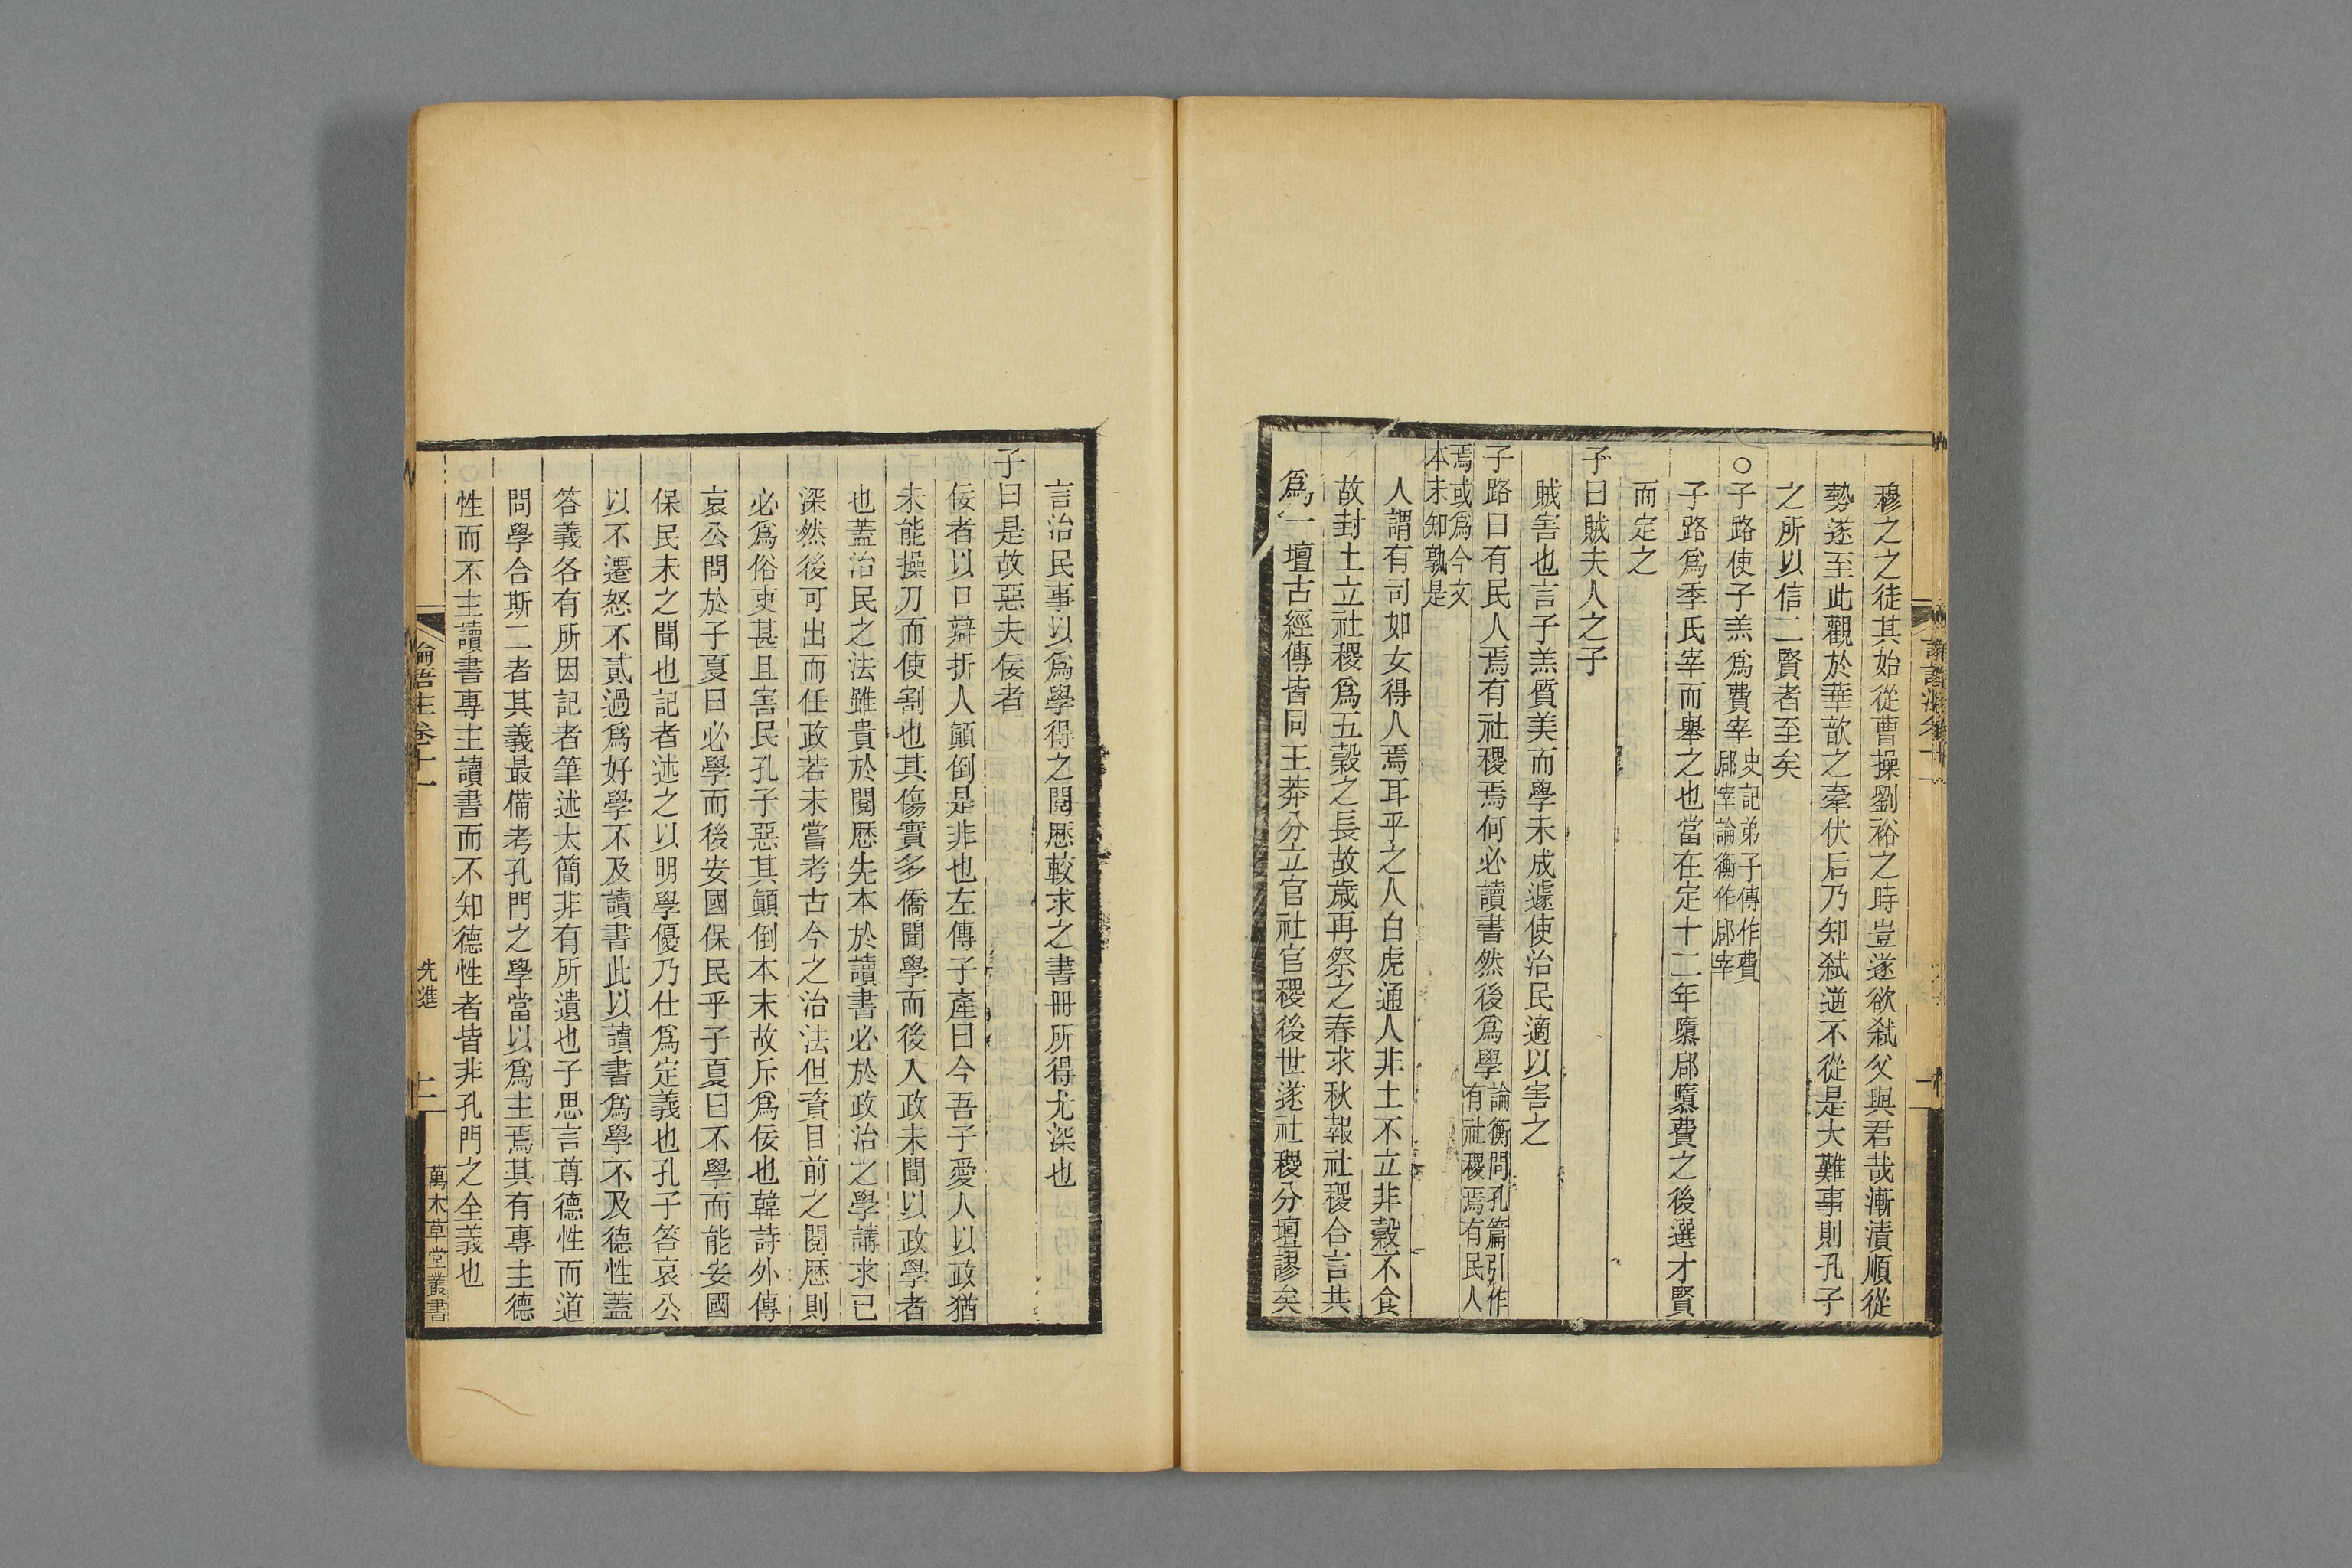 穆之之徒其始從曹操劉裕之時豈遂欲弑父與君哉漸漬順從
勢遂至此觀於華歆之牽伏后乃知弑逆不從是大難事則孔子
之所以信二賢者至矣
○子路使子羔爲費宰史記弟子傳作費
郈宰論衡作郈宰
子路爲季氏宰而舉之也當在定十二年墮郈墮費之後選才賢
而定之
子曰賊夫人之子
賊害也言子羔質美而學未成遽使治民適以害之
子路曰有民人焉有社稷焉何必讀書然後爲學論衡問孔篇引作
有社稷焉有民人
焉或爲今文
本未知孰是
人謂有司如女得人焉耳乎之人白虎通人非土不立非穀不食
故封土立社稷爲五穀之長故歲再祭之春求秋報社稷合言共
爲一壇古經傳皆同王莽分立官社官稷後世遂社稷分壇謬矣
言治民事以爲學得之閱歷較求之書冊所得尤深也
子曰是故惡夫佞者
佞者以口辯折人顚倒是非也左傳子產曰今吾子愛人以政猶
未能操刀而使割也其傷實多僑聞學而後入政未聞以政學者
也蓋治民之法雖貴於閱歷先本於讀書必於政治之學講求已
深然後可出而任政若未嘗考古今之治法但資目前之閱歷則
必爲俗吏甚且害民孔子惡其顚倒本末故斥爲佞也韓詩外傳
哀公問於子夏曰必學而後安國保民乎子夏曰不學而能安國
保民未之聞也記者述之以明學優乃仕爲定義也孔子答哀公
以不遷怒不貳過爲好學不及讀書此以讀書爲學不及德性蓋
答義各有所因記者筆述太簡非有所遺也子思言尊德性而道
問學合斯二者其義最備考孔門之學當以爲主焉其有專主德
性而不主讀書專主讀書而不知德性者皆非孔門之全義也
論語注卷十一
先進
十一
萬木草堂叢書